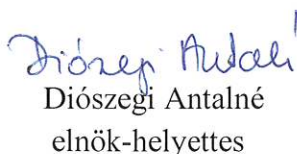 Diószegi Antalné
Diószegi Antalné
elnök-helyettes